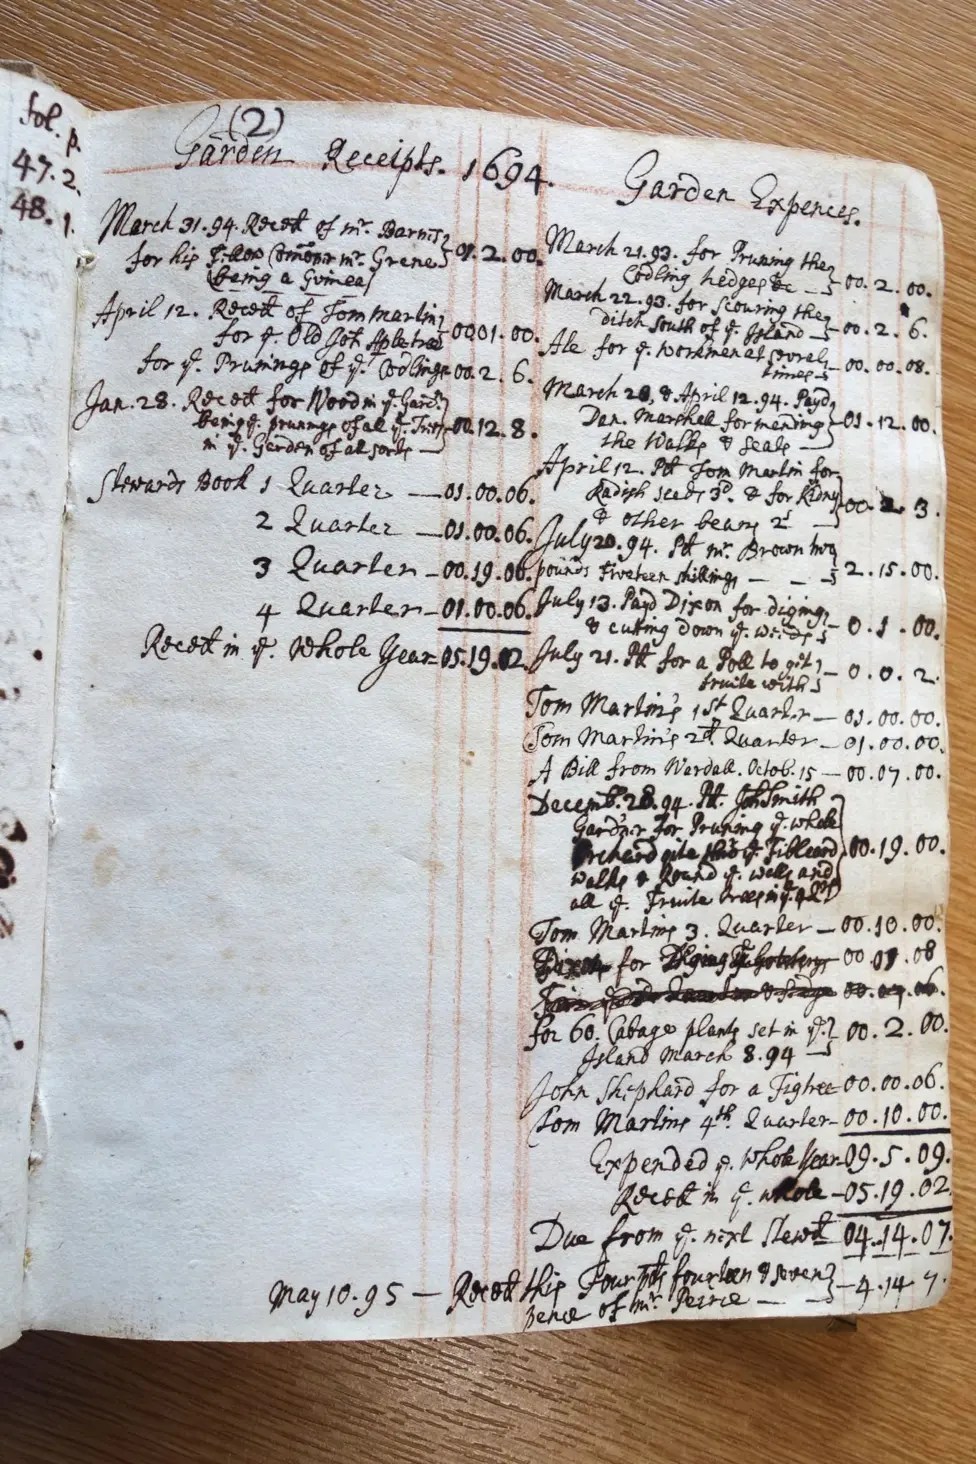 fol. p.
47. 2.
48. 1.
(2)
Garden Receipts. 1694.
March 31. 94. Recétt of mr. Barnes
for his Fellow Comonr mr. Grene 01. 2. 00.
(being a Guinea)
April 12. Recétt of Tom martin
for ye. Old Apletree 0001. 00.
for ye. Prunings of ye. Codlings 00. 2. 6.
Jan. 28. Recétt for Wood in ye. Gard.
being ye. prunings of all ye. Trees 00. 12. 8.
in ye. Garden of all sorts —
Stewards Book 1 Quarter — 01. 00. 06.
2 Quarter — 01. 00. 06.
3 Quarter — 00. 19. 06.
4 Quarter — 01. 00. 06.
Recétt in ye. Whole Year = 05. 19. 02.
Garden Expences.
March 21. 93. for Pruning the
Codling hedges &c — 00. 2. 00.
March 22. 93. for scouring the
ditch South of ye. Island — 00. 2. 6.
Ale for ye. workmen at several
times — 00. 00. 08.
March 28, & April 12. 94. Payd
Dan. Marshall for mending 01. 12. 00.
the Walks & seats —
April 12. Pd Tom Martin for
Radish seeds 3d. & for Kidny 00. 2. 3.
& other beans 2s —
July 20. 94. Pd mr. Brown two
pounds Fiveteen shillings — — 2. 15. 00.
July 13. Payd Dixon for diging
& cutting down ye. weeds — 0. 1. 00.
July 21. Pd for a Poll to get
fruite with — 0. 0. 2.
Tom Martin's 1st Quarter — 01. 00. 00.
Tom Martin's 2d. Quarter — 01. 00. 00.
A Bill from Wardall. Octob. 15 — 00. 07. 00.
Decemb. 28. 94. Pd. Joh Smith
Gard'ner for Pruning ye. whole
Orchard ye.
walks & Round ye. walls and 00. 19. 00.
all ye. Fruite trees in ye.
Tom Martins 3. Quarter — 00. 10. 00.
Dixon for Diging 00 01 08
for 60. Cabage plants set in ye. 00. 2. 00.
Island march 8. 94 —
John Shephard for a Figtree 00. 00. 06.
Tom Martins 4th. Quarter — 00. 10. 00.
Expended ye. whole Year — 09. 5. 09.
Recétt in ye. whole — 05. 19. 02.
Due from ye. next Stewd 04. 14. 07.
May 10. 95 — Recétt this Four pds fourteen & seven
pence of mr. Peirce — — 4. 14 7.